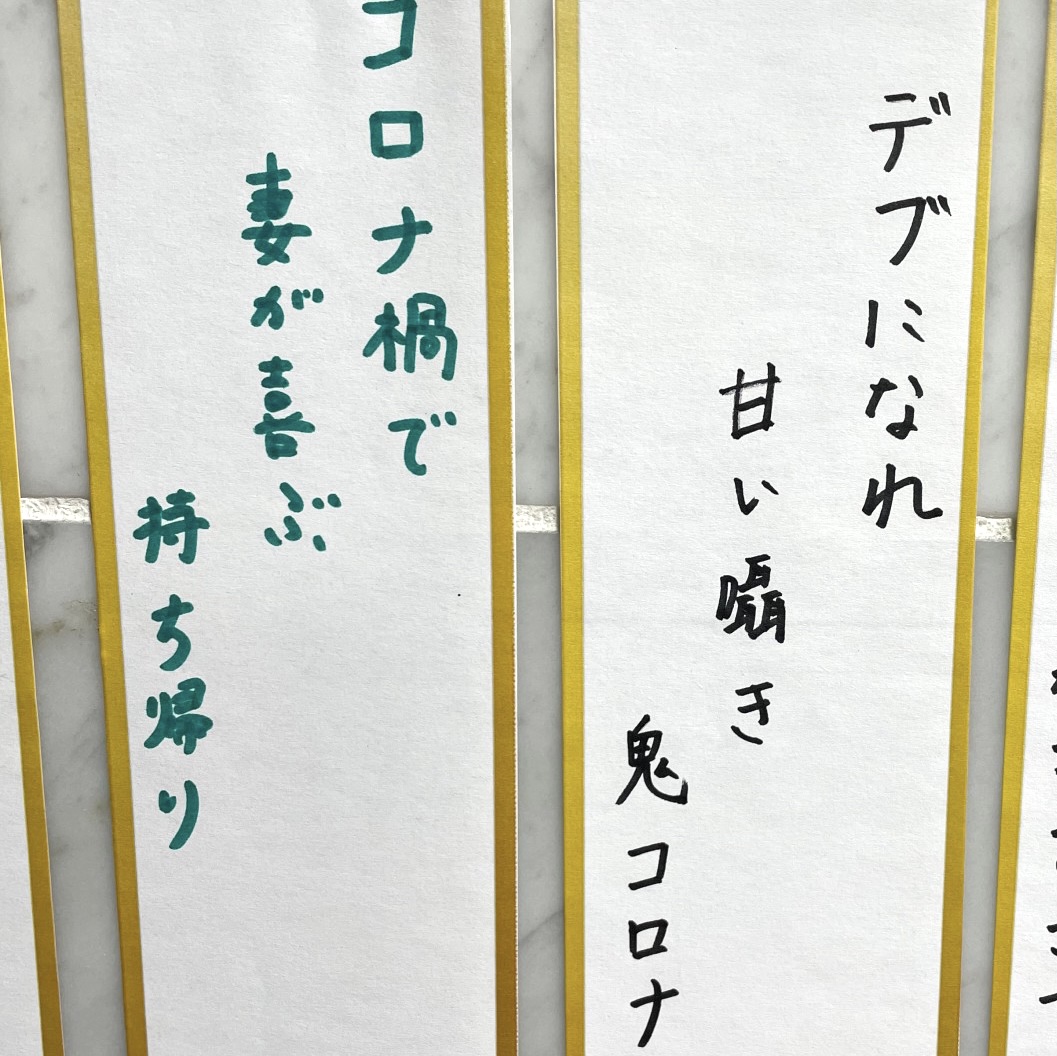 デブになれ
甘い囁き
鬼コロナ
コロナ禍で
妻が喜ぶ
持ち帰り